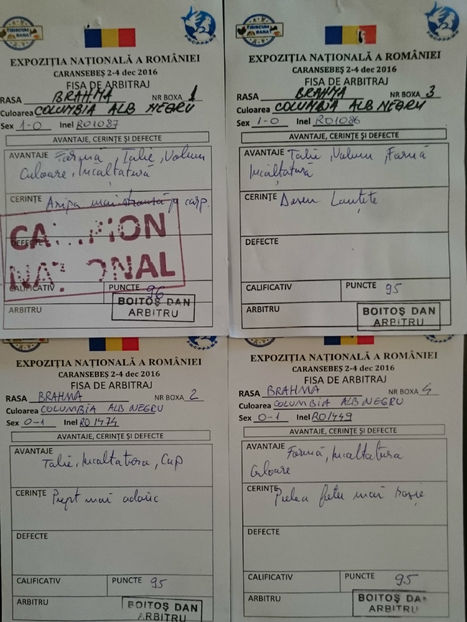 EXPOZIȚIA NAȚIONALĂ A ROMÂNIEI
CARANSEBEȘ 2-4 dec 2016
FISA DE ARBITRAJ
RASA BRAHMA NR BOXA 1
Culoarea COLUMBIA ALB NEGRU
Sex 1-0 Inel RO1087
AVANTAJE, CERINȚE ȘI DEFECTE
AVANTAJE Forma, Talie, Volum
Culoare, Incaltatură
CERINȚE Aripa mai carp.
CAMPION
NAȚIONAL
CALIFICATIV PUNCTE 96
ARBITRU BOITOȘ DAN
ARBITRU
EXPOZIȚIA NAȚIONALĂ A ROMÂNIEI
CARANSEBEȘ 2-4 dec 2016
FISA DE ARBITRAJ
RASA BRAHMA NR BOXA 3
Culoarea COLUMBIA ALB NEGRU
Sex 1-0 Inel RO1086
AVANTAJE, CERINȚE ȘI DEFECTE
AVANTAJE Talie, Volum, Formă
Incaltătură
CERINȚE Desen
DEFECTE
CALIFICATIV PUNCTE 95
ARBITRU BOITOȘ DAN
ARBITRU
EXPOZIȚIA NAȚIONALĂ A ROMÂNIEI
CARANSEBEȘ 2-4 dec 2016
FISA DE ARBITRAJ
RASA BRAHMA NR BOXA 2
Culoarea COLUMBIA ALB NEGRU
Sex 0-1 Inel RO1474
AVANTAJE, CERINȚE ȘI DEFECTE
AVANTAJE
Talie, Incaltatura, Cap
CERINȚE Piept mai adanc
DEFECTE
CALIFICATIV PUNCTE 95
ARBITRU BOITOȘ DAN
ARBITRU
EXPOZIȚIA NAȚIONALĂ A ROMÂNIEI
CARANSEBEȘ 2-4 dec 2016
FISA DE ARBITRAJ
RASA BRAHMA NR BOXA 4
Culoarea COLUMBIA ALB NEGRU
Sex 0-1 Inel RO1449
AVANTAJE, CERINȚE ȘI DEFECTE
AVANTAJE Formă, Incaltatura
Culoare
CERINȚE Pielea fetei mai roșie
DEFECTE
CALIFICATIV PUNCTE 95
ARBITRU BOITOȘ DAN
ARBITRU